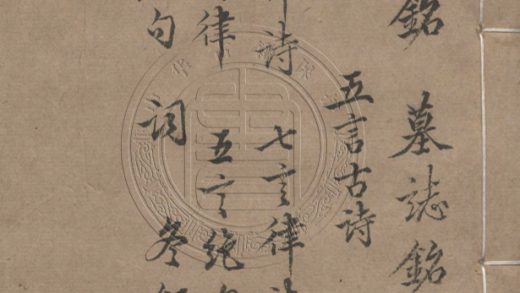 銘 墓誌銘
五言古詩
詩 七言律詩
律 五言絶
句 詞